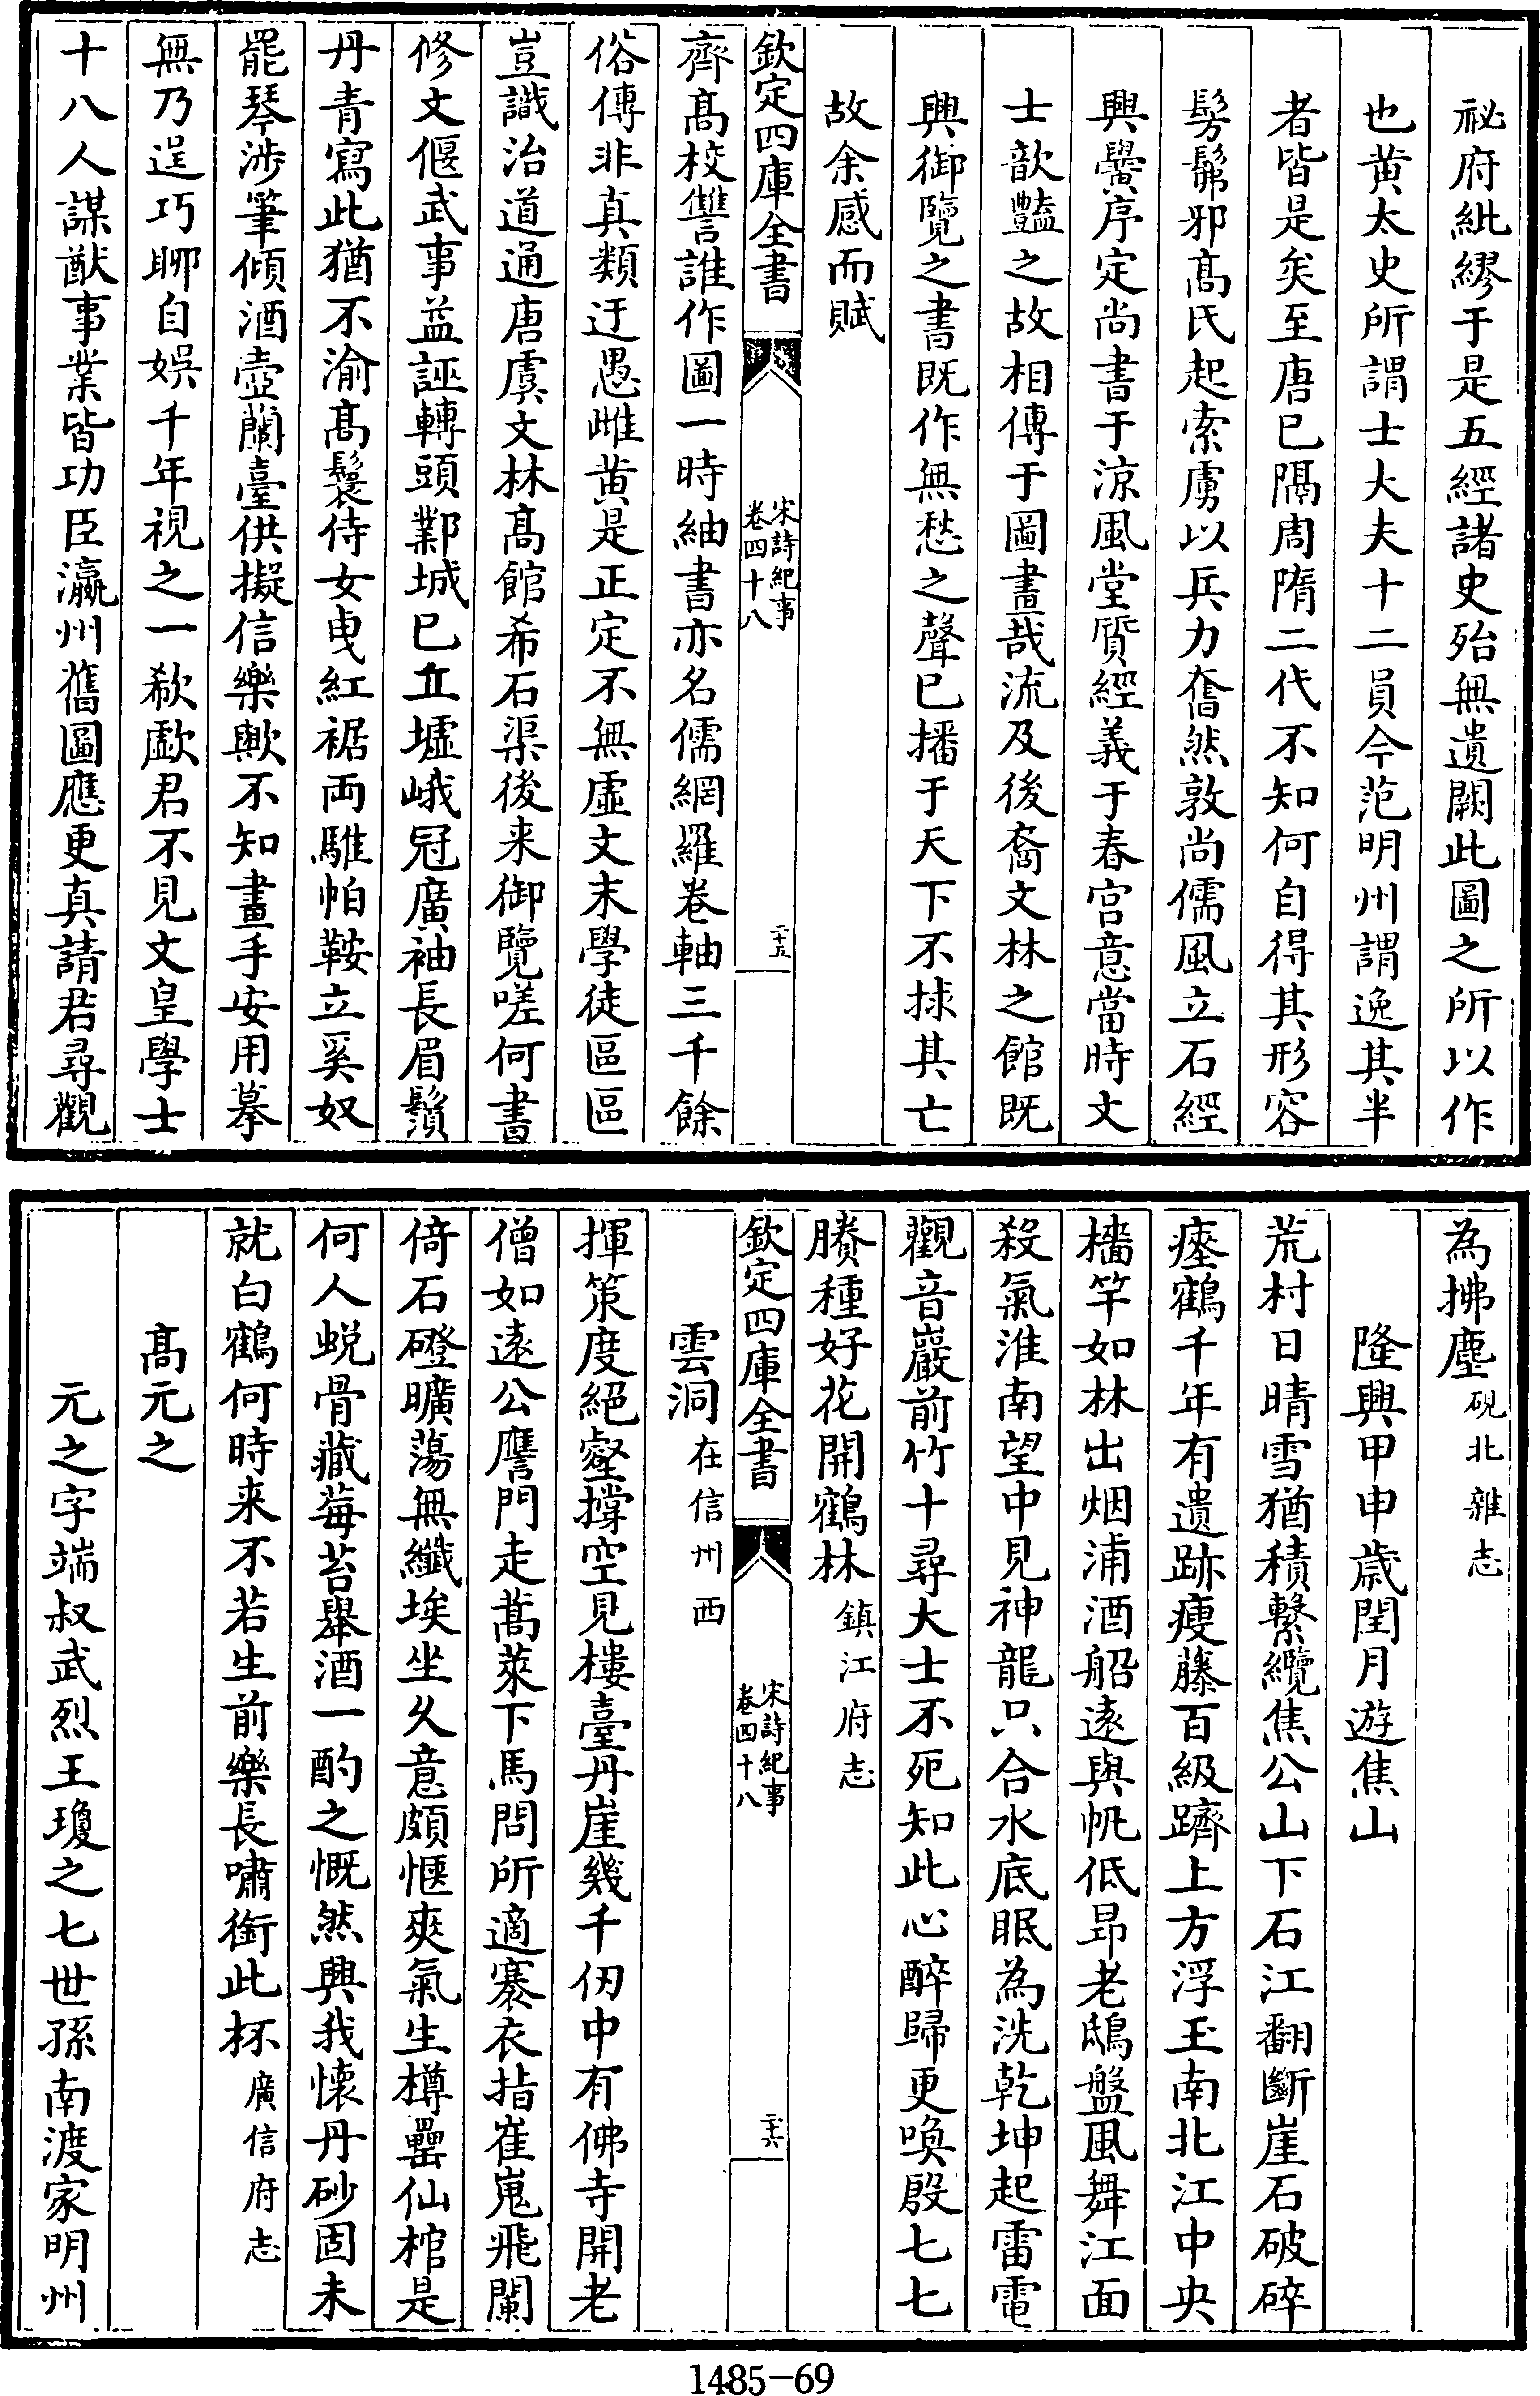 祕府紕繆于是五經諸史殆無遺闕此圖之所以作
也黄太史所謂士大夫十二員今范明州謂逸其半
者皆是矣至唐已隔周隋二代不知何自得其形容
髣髴邪髙氏起索虜以兵力奮然敦尚儒風立石經
興黌序定尚書于涼風堂質經義于春宫意當時文
士歆豔之故相傳于圖畫哉流及後裔文林之館既
興御覽之書既作無愁之聲已播于天下不捄其亡
故余感而賦
欽定四庫全書
宋詩紀事
卷四十八
二十五
齊髙校讐誰作圖一時紬書亦名儒網羅卷軸三千餘
俗傳非真類迂愚雌黄是正定不無虚文末學徒區區
豈識治道通唐虞文林髙館希石渠後来御覽嗟何書
修文偃武事益誣轉頭鄴城已丘墟峨冠廣袖長眉鬚
丹青寫此猶不渝髙鬟侍女曳紅裾両騅帕鞍立奚奴
罷琴涉筆傾酒壺蘭臺供擬信樂歟不知畫手安用摹
無乃逞巧聊自娯千年視之一欷歔君不見文皇學士
十八人謀猷事業皆功臣瀛州舊圖應更真請君尋觀
為拂塵硯北雜志
隆興甲申歲閏月遊焦山
荒村日晴雪猶積繫纜焦公山下石江翻斷崖石破碎
瘞鶴千年有遺跡瘦藤百級躋上方浮玉南北江中央
檣竿如林出烟浦酒船遠與帆低昻老鴟盤風舞江面
殺氣淮南望中見神龍只合水底眠為洗乾坤起雷電
觀音巖前竹十尋大士不死知此心醉歸更喚殷七七
賸種好花開鶴林鎮江府志
欽定四庫全書
宋詩紀事
卷四十八
二十六
雲洞在信州西
揮策度絕壑撐空見樓臺丹崖幾千仞中有佛寺開老
僧如遠公譍門走蒿萊下馬問所適褰衣指崔嵬飛闌
倚石磴曠蕩無纖埃坐久意頗愜爽氣生樽罍仙棺是
何人蛻骨藏莓苔舉酒一酌之慨然興我懷丹砂固未
就白鶴何時来不若生前樂長嘯銜此杯廣信府志
髙元之
元之字端叔武烈王瓊之七世孫南渡家明州
1485-69